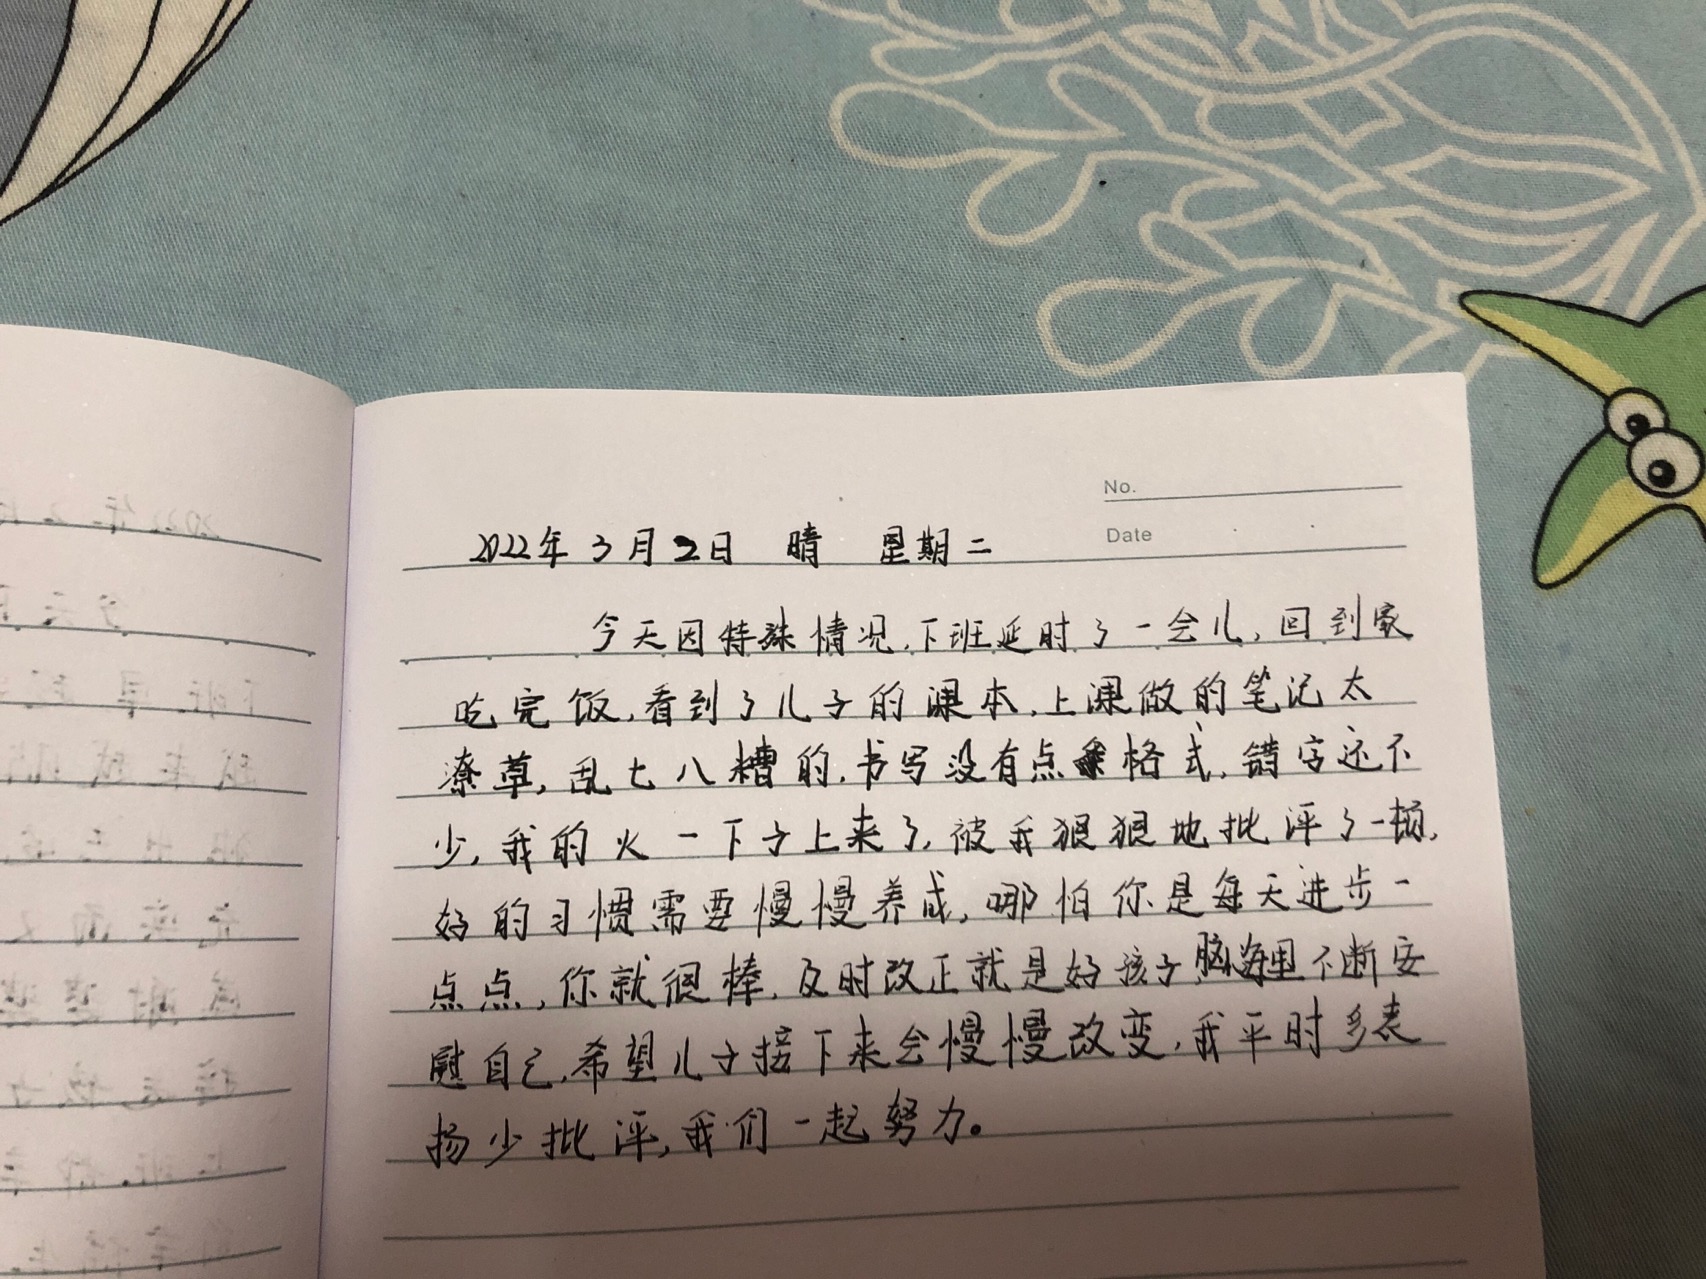 No.
Date
2022年3月2日 晴 星期二
今天因特殊情况,下班延时了一会儿,回到家
吃完饭,看到了儿子的课本,上课做的笔记太
潦草,乱七八糟的,书写没有点格式,错字还不
少,我的火一下子上来了,被我狠狠地批评了一顿,
好的习惯需要慢慢养成,哪怕你是每天进步一
点点,你就很棒,及时改正就是好孩子,脑海里不断安
慰自己,希望儿子接下来会慢慢改变,我平时多表
扬少批评,我们一起努力。